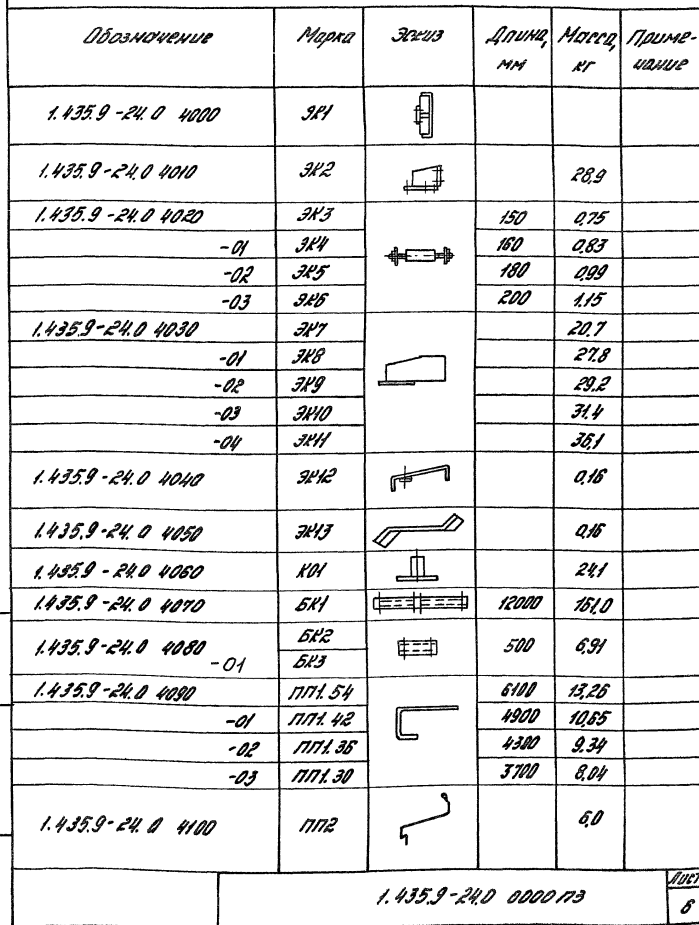 Обозначение Марка Эскиз Длина, мм Масса, кг Приме-чание
1.435.9-24.0 4000 ЭК1
1.435.9-24.0 4010 ЭК2 28,9
1.435.9-24.0 4020 ЭК3 150 0,75
-01 ЭК4 160 0,83
-02 ЭК5 180 0,99
-03 ЭК6 200 1.15
1.435.9-24.0 4030 ЭК7 20,7
-01 ЭК8 27,8
-02 ЭК9 29,2
-03 ЭК10 31.4
-04 ЭК11 36,1
1.435.9-24.0 4040 ЭК12 0,16
1.435.9-24.0 4050 ЭК13 0,16
1.435.9-24.0 4060 КО1 24,1
1.435.9-24.0 4070 БК1 12000 161,0
1.435.9-24.0 4080 БК2 500 6,91
-01 БК3
1.435.9-24.0 4090 ПП1.54 6100 13,26
-01 ПП1.42 4900 10,65
-02 ПП1.36 4300 9.34
-03 ПП1.30 3700 8,04
1.435.9-24.0 4100 ПП2 6,0
1.435.9-24.0 0000 ПЗ
Лист
6